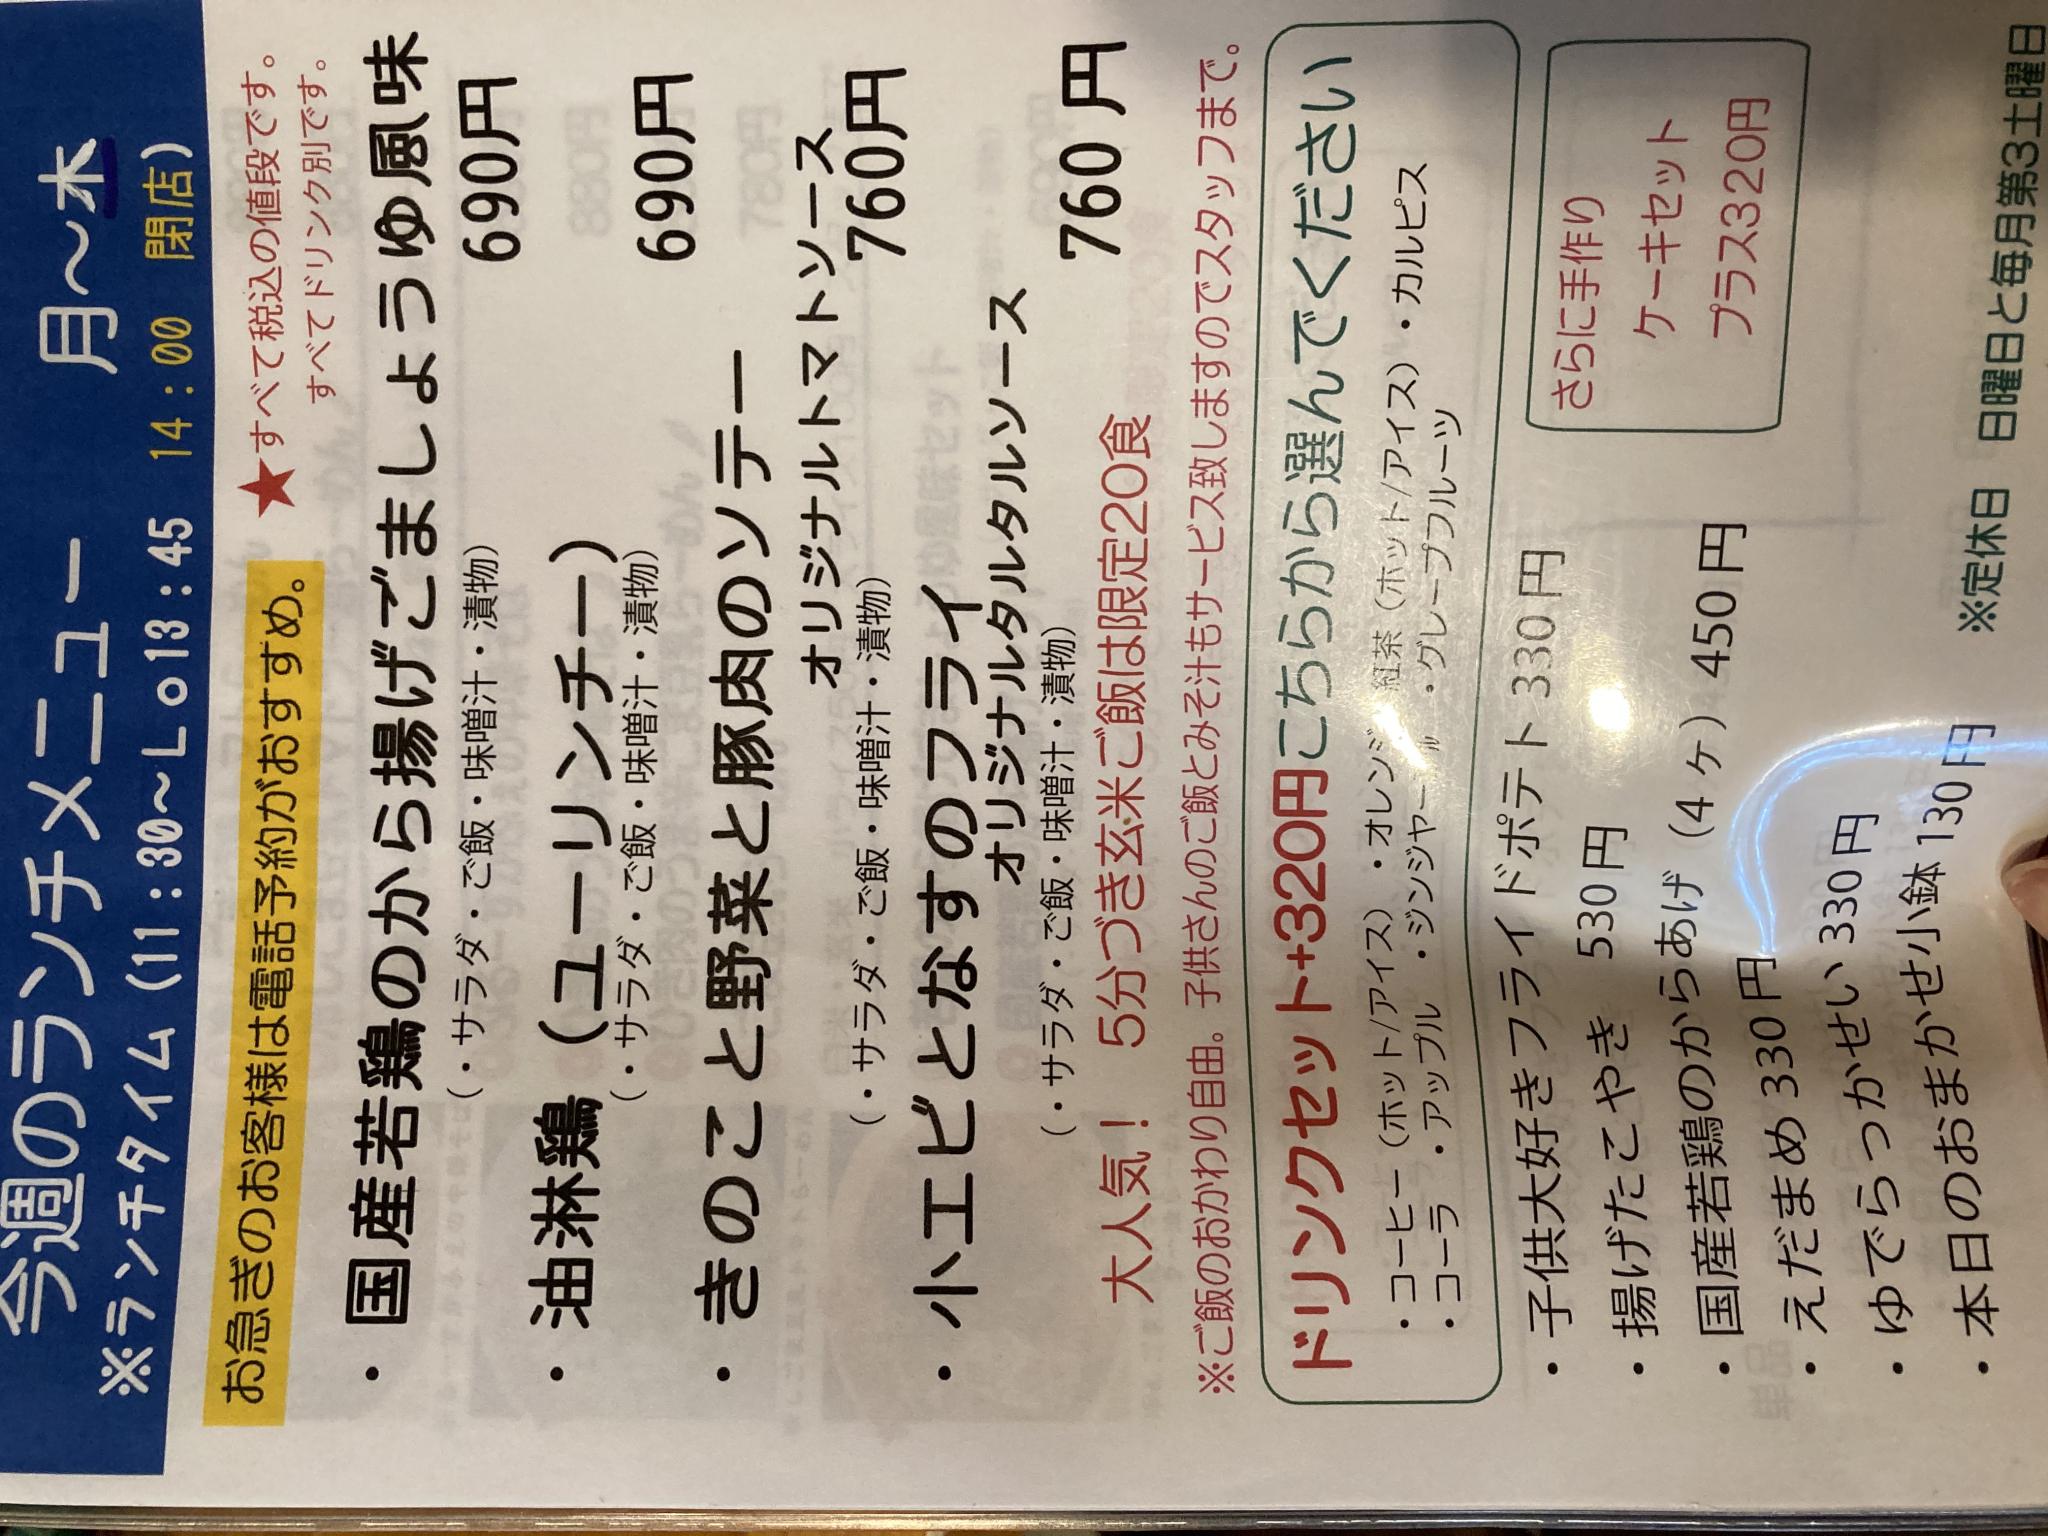 今週のランチメニュー 月～木
※ランチタイム（11：30～Lo13：45 14：00 閉店）
お急ぎのお客様は電話予約がおすすめ。
★すべて税込の値段です。
すべてドリンク別です。
・国産若鶏のから揚げごましょうゆ風味
（・サラダ・ご飯・味噌汁・漬物） 690円
・油淋鶏（ユーリンチー）
（・サラダ・ご飯・味噌汁・漬物） 690円
・きのこと野菜と豚肉のソテー
オリジナルトマトソース
（・サラダ・ご飯・味噌汁・漬物） 760円
・小エビとなすのフライ
オリジナルタルタルソース
（・サラダ・ご飯・味噌汁・漬物） 760円
大人気！ 5分づき玄米ご飯は限定20食
※ご飯のおかわり自由。子供さんのご飯とみそ汁もサービス致しますのでスタッフまで。
ドリンクセット+320円こちらから選んでください
・コーヒー（ホット/アイス）・オレンジ 紅茶（ホット/アイス）・カルピス
・コーラ ・アップル ・ジンジャー ・グレープフルーツ
・子供大好きフライドポテト 330円
・揚げたこやき 530円
・国産若鶏のからあげ（4ヶ）450円
・えだまめ 330円
・ゆでらっかせい 330円
・本日のおまかせ小鉢 130円
さらに手作り
ケーキセット
プラス320円
※定休日 日曜日と毎月第3土曜日